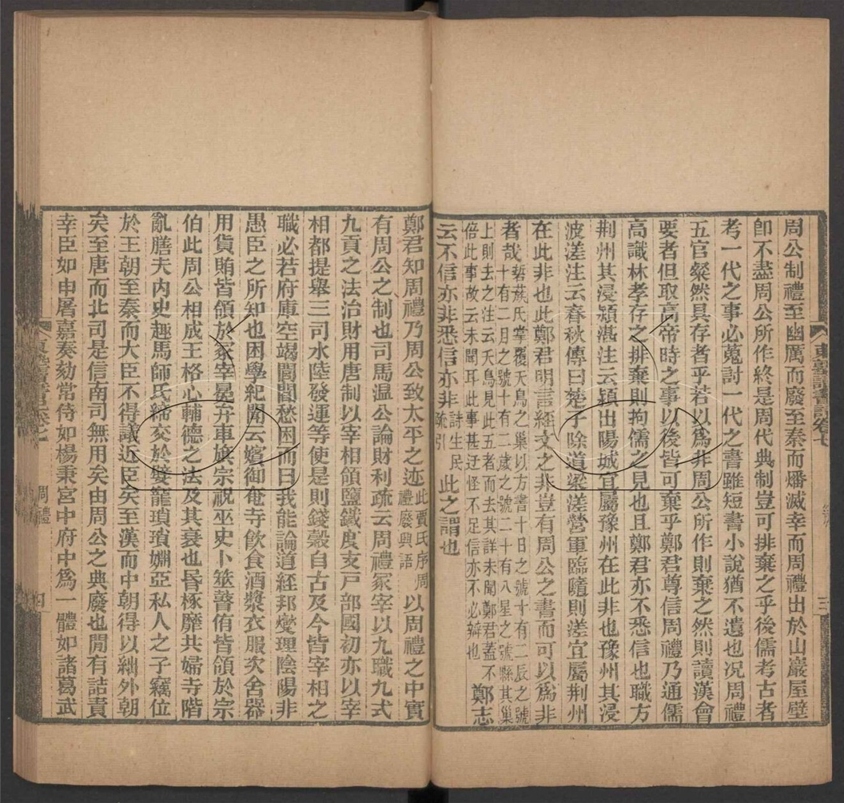 周公制禮至幽厲而廢至秦而燔滅幸而周禮出於山巖屋壁
卽不盡周公所作終是周代典制豈可排棄之乎後儒考古者
考一代之事必蒐討一代之書雖短書小說猶不遺也况周禮
五官粲然具存者乎若以爲非周公所作則棄之然則讀漢會
要者但取高帝時之事以後皆可棄乎鄭君尊信周禮乃通儒
高識林孝存之排棄則拘儒之見也且鄭君亦不悉信也職方
荆州其浸潁湛注云潁出陽城宜屬豫州在此非也豫州其浸
波溠注云春秋傳曰楚子除道梁溠營軍臨隨則溠宜屬荆州
在此非也此鄭君明言經文之非豈有周公之書而可以爲非
者哉硩蔟氏掌覆夭鳥之巢以方書十日之號十有二辰之號
十有二月之號十有二歲之號二十有八星之號縣其巢
上則去之注云夭鳥見此五者而去其詳未聞鄭君蓋不
信此事故云未聞耳此事甚迂怪不足信亦不必辨也鄭志
云不信亦非悉信亦非詩生民疏引此之謂也
東塾讀書記卷七
三
鄭君知周禮乃周公致太平之迹此賈氏序周禮廢興語以周禮之中實
有周公之制也司馬温公論財利疏云周禮冢宰以九職九式
九貢之法治財用唐制以宰相領鹽鐵度支戸部國初亦以宰
相都提舉三司水陸發運等使是則錢穀自古及今皆宰相之
職必若府庫空竭閭閻愁困而曰我能論道經邦燮理陰陽非
愚臣之所知也困學紀聞云嬪御奄寺飮食酒漿衣服次舍器
用貨賄皆領於冢宰冕弁車旗宗祝巫史卜筮瞽侑皆領於宗
伯此周公相成王格心輔德之法及其衰也昏椓靡共婦寺階
亂膳夫内史趣馬師氏締交於嬖寵瑣瑣姻亞私人之子竊位
於王朝至秦而大臣不得議近臣矣至漢而中朝得以紲外朝
矣至唐而北司是信南司無用矣由周公之典廢也間有詰責
幸臣如申屠嘉奏劾常侍如楊秉宮中府中爲一體如諸葛武
周禮
四